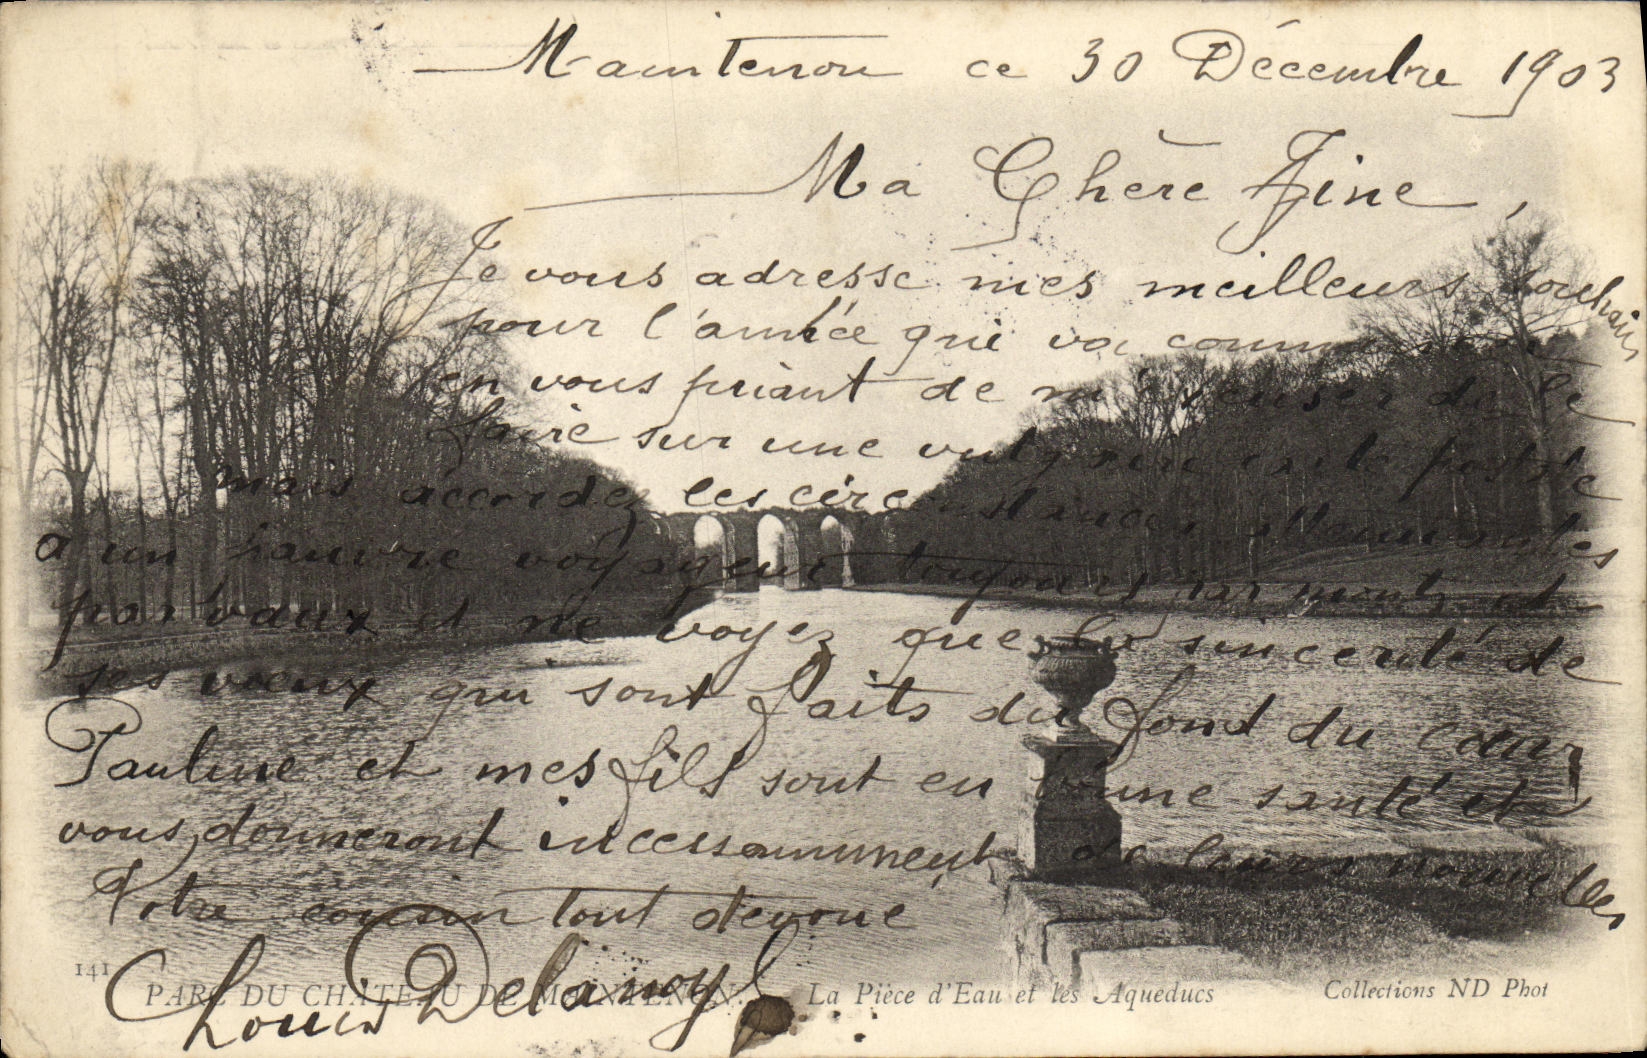 Maintenon ce 30 Décembre 1903
Ma Chère Fine,
Je vous adresse mes meilleurs souhaits
pour l'année qui va commencer
en vous priant de m'excuser de le
faire sur une vulgaire carte postale
mais accordez les circonstances atténuantes
a un pauvre voyageur toujours par monts et
par vaux et ne voyez que la sincerité de
ses voeux qui sont faits du fond du coeur
Pauline et mes fils sont en bonne santé et
vous donneront incessamment de leurs nouvelles
Votre cousin tout dévoué
Louis Delanoy
141 PARC DU CHÂTEAU DE MAINTENON. La Pièce d'Eau et les Aqueducs Collections ND Phot